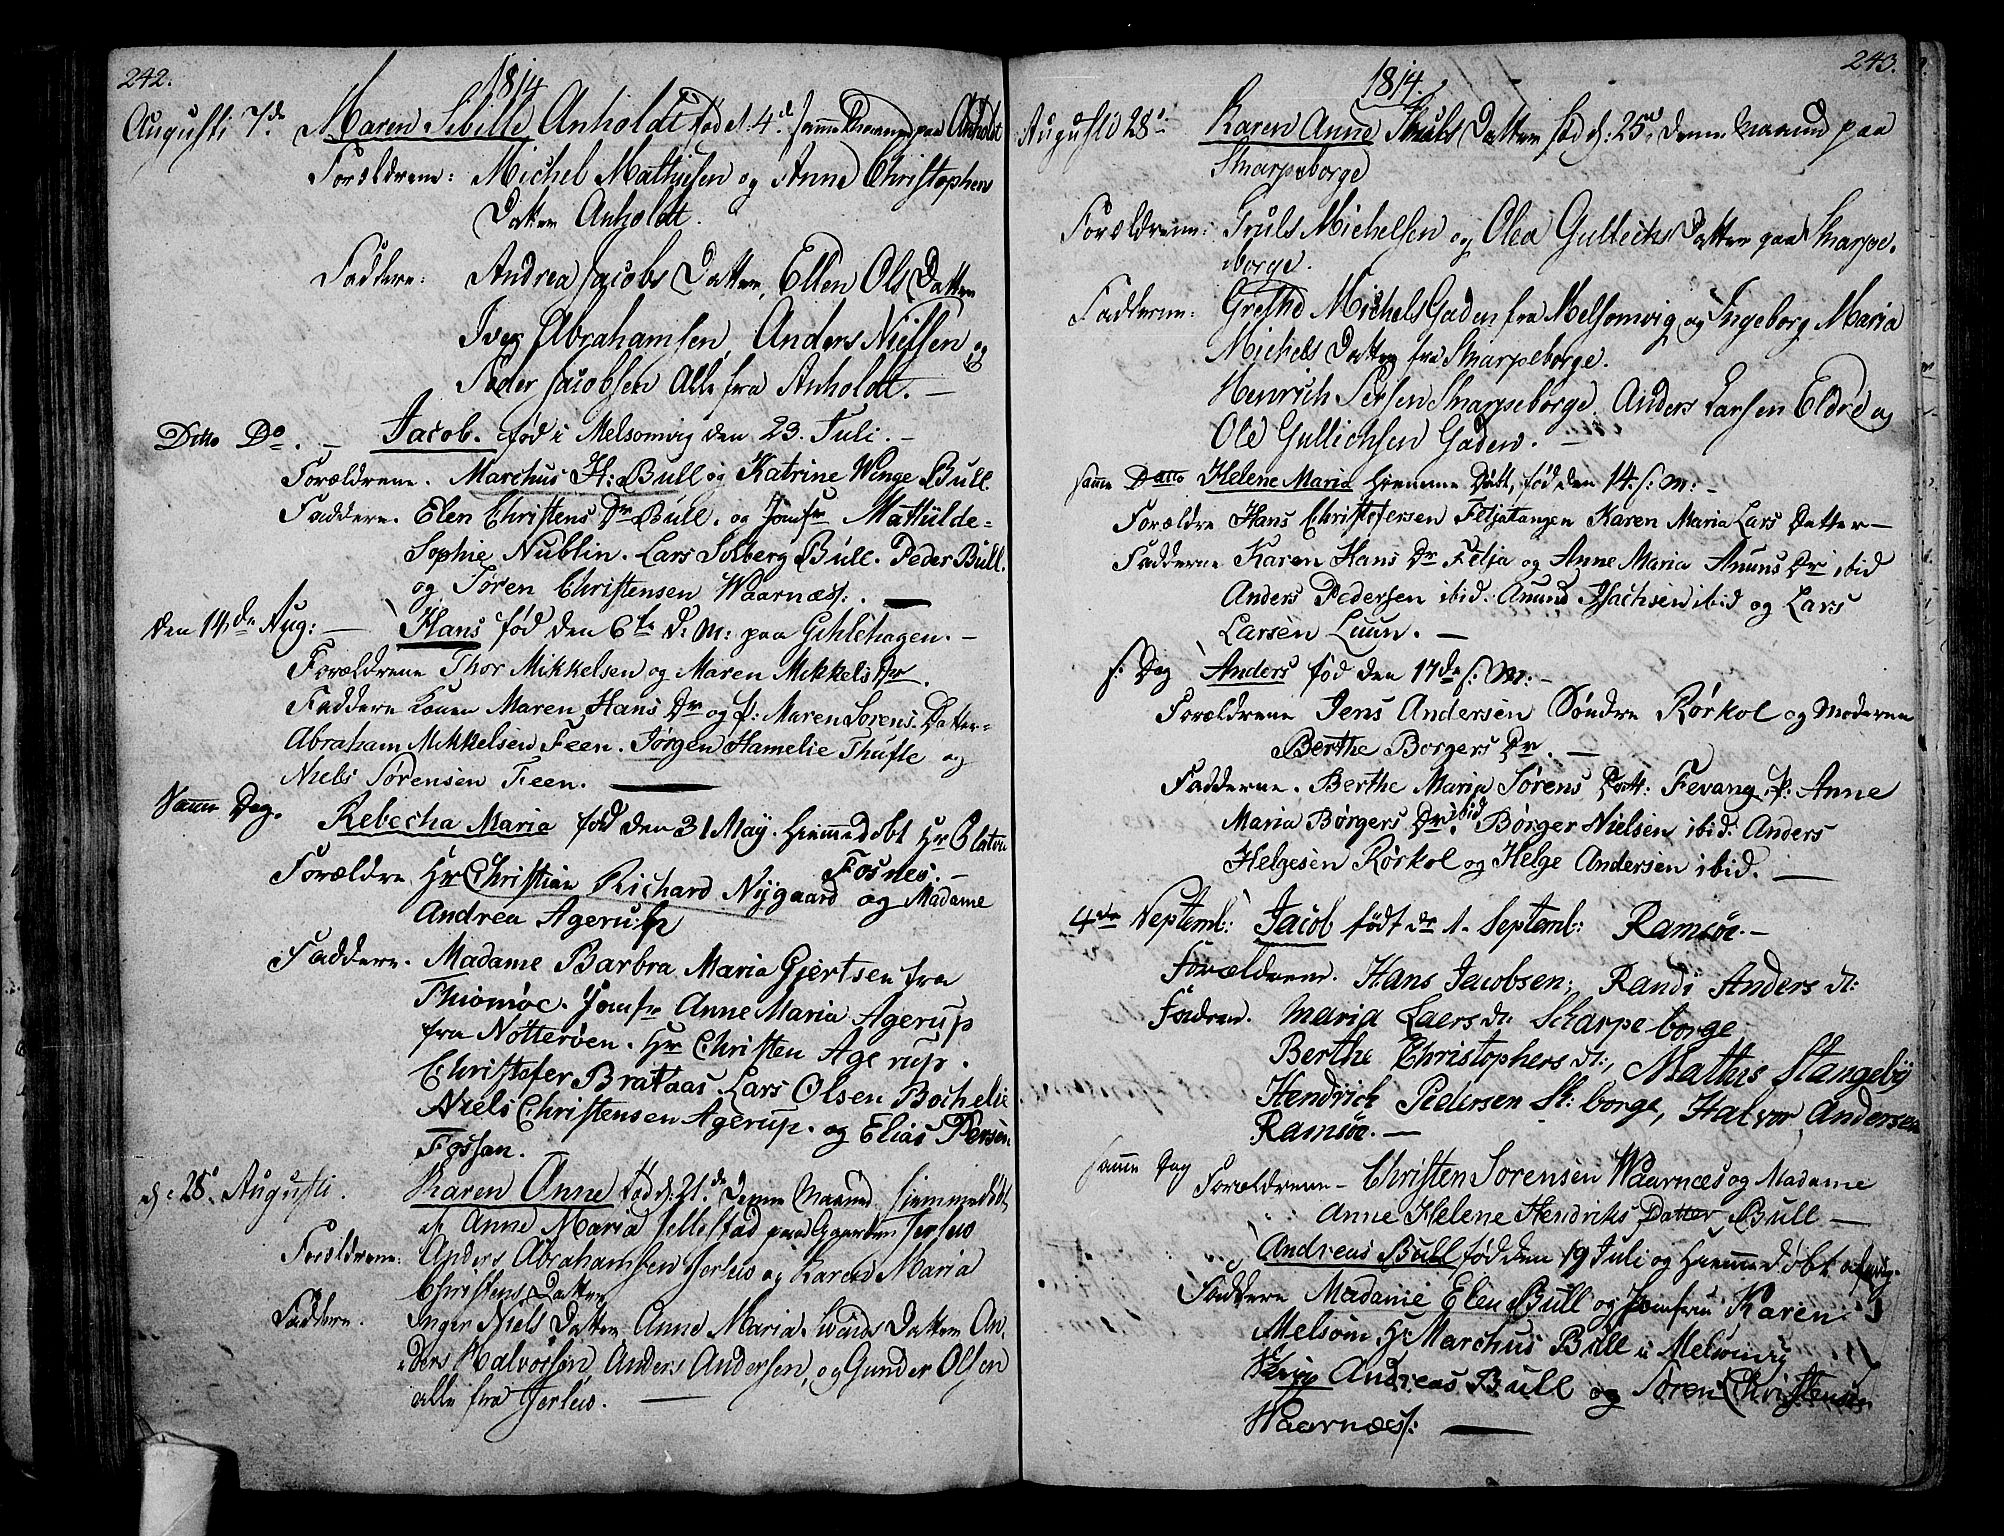 242.
1814
Augusti 7de Maren Sibille Anholdt fød d. 4de samme Maaned paa Anholdt
Forældrene: Michel Mathisen og Anne Christophers
Datter Anholdt.
Faddere: Andrea Jacobs Datter, Ellen Ols Datter
Iver Abrahamsen, Anders Nielsen og
Peder Jacobsen Alle fra Anholdt. —
Ditto Do. — Jacob. fød i Melsomvig den 23. Juli. —
Forældrene. Marchus H: Bull og Katrine Winge Bull.
Faddere. Elen Christens Dr Bull. og Jomfr Mathilde
Sophie Nublin. Lars Solberg Bull. Peder Bull.
og Søren Christensen Waarnæs:. —
den 14de Aug: — Hans fød den 6te d: M: paa Gihlehagen. —
Forældrene Thor Mikkelsen og Maren Mikkels Dr.
Faddere Konen Maren Hans Dr og p: Maren Sorens Datter
Abraham Mikkelsen Feen. Jørgen Hamelie Thufte og
Niels Sørensen Feen. —
Samme Dag. Rebecha Maria fød den 31 May. Hiemmedøbt Hr
Fosnes. —
Forældre Hr Christian Richard Nygaard og Madame
Andrea Agerup
Faddere. Madame Barbra Maria Gjertsen fra
Thiomøe. Jomfr Anne Maria Agerup
fra Notterøen. Hr Christen Agerup.
Christofer Brataas. Lars Olsen Bochelie
Niels Christensen Agerup. og Elias Persen
Fossan.
d: 28de Augusti. Karen Anne fød d. 21de denne Maaned hiemmedøbt
af Anne Maria paa Gaarden
Forældrene: Anders Abrahamsen og Karen Maria
Christens Datter
Faddere. Inger Niels Datter Anne Maria Datter An-
ders Halvorsen, Anders Andersen, og Gunder Olsen
alle fra —
243.
1814.
Augusti 28de Karen Anne Truls Datter fød d. 25de denne Maaned paa
Sharpeborge
Forældrene: Truls Michelsen og Olea Gullichs Datter paa Sharpe-
borge.
Fadderne: Grethe Michels Gaden fra Melsomvig og Ingeborg Maria
Michels Datter fra Sharpeborge.
Henrich Sharpeborge. Anders Larsen Eldre og
Ole Gullichsen Gaden. —
samme Datto Helene Maria hiemme Døbt, fød den 14. s: M: —
Forældre Hans Christofersen Feljatangen Karen Maria Lars Datter —
Fadderne Karen Hans Dr Felja og Anne Maria Anuns Dr ibid
Anders Pedersen ibid. Anund Isachsen ibid og Lars
Larsen Luun. —
s: Dag Anders fød den 17de s: M: —
Forældrene Jens Andersen Søndre Rørkol og Moderen
Berthe Borgers Dr. —
Fadderne. Berthe Maria Sørens Datt: Fevang. p: Anne
Maria Børgers Dr ibid. Børger Nielsen ibid. Anders
Helgesen Rørkol og Helge Andersen ibid. —
4de Septembl: Jacob født de 1. Septembl: Ramsøe. —
Forældrene. Hans Jacobsen; Randi Anders dt:
Fadren. Maria Laers dt: Scharpeborge
Berthe Christophers dt:, Mathis Stangeby
Hendrick Pedersen St: borge, Halvor Andersen
Ramsøe. —
samme Dag Forældrene — Christen Sorensen Waarnæs og Madame
Anne Helene Hendriks Datter Bull —
Andreas Bull fød den 19 Juli og Hiemmedøbt
Faddere Madame Elen Bull og Jomfru Karen
Melsom Hr Marchus Bull i Melsomvig
Andreas Bull og Søren Christensen
Waarnæs: —